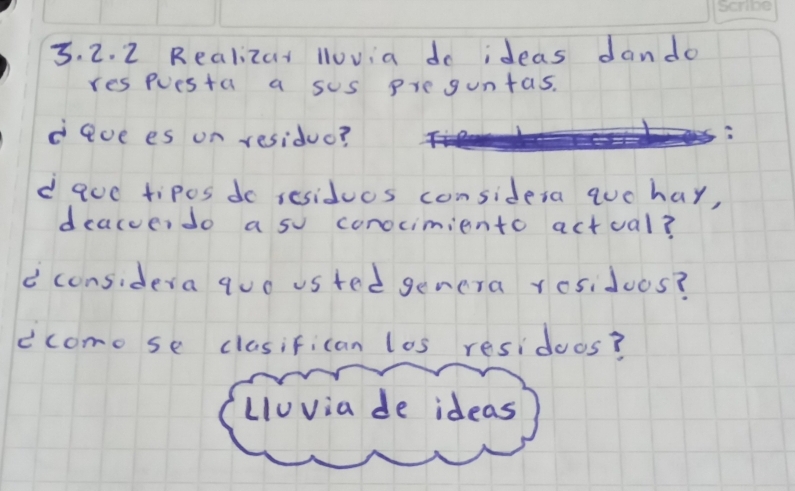 Scribe
3.2.2 Realizar lluvia de ideas dando
respuesta a sus preguntas.
¿que es un residuo?
¿que tipos de residuos considera que hay,
deacuerdo a su conocimiento actual?
¿considera que usted genera residuos?
¿como se clasifican los residuos?
Lluvia de ideas